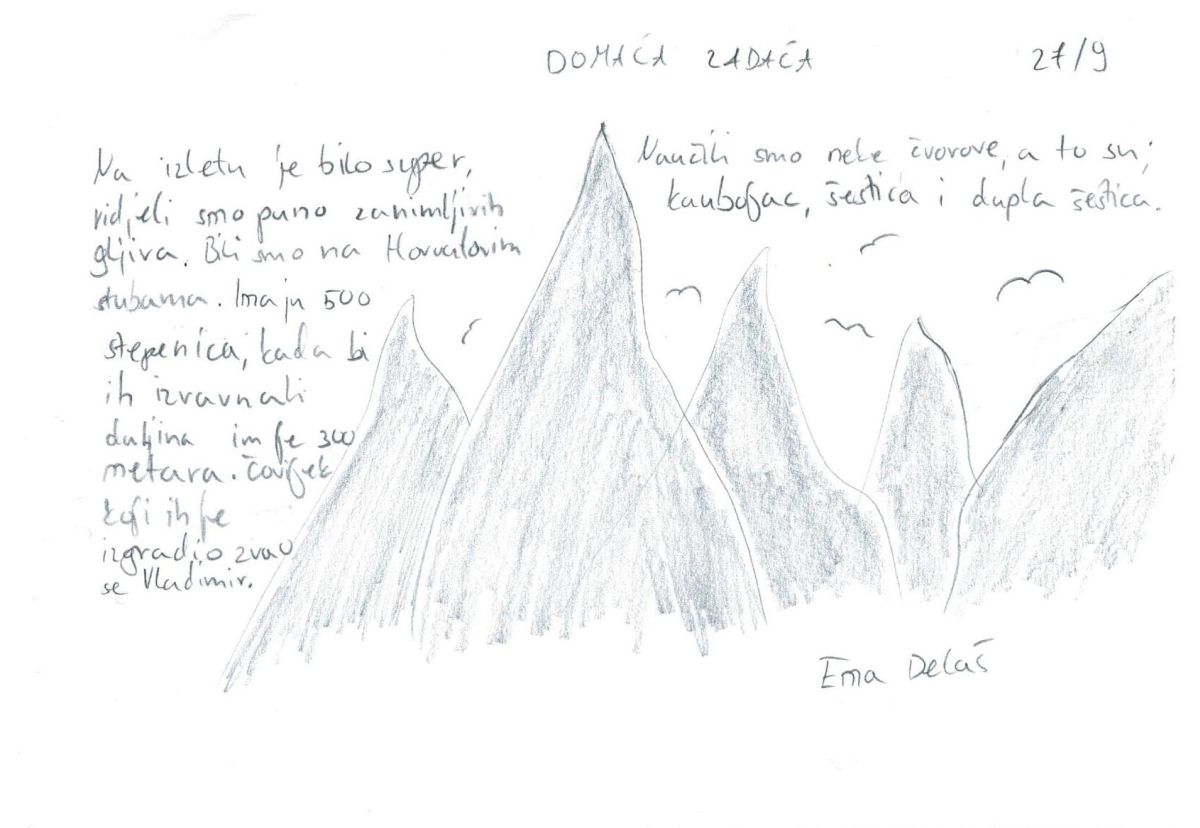 DOMAĆA ZADAĆA 27/9
Na izletu je bilo super,
vidjeli smo puno zanimljivih
gljiva. Bili smo na Horvatovim
stubama. Imaju 500
stepenica, kada bi
ih izravnali
duljina im je 300
metara. Čovjek
koji ih je
izgradio zvao
se Vladimir.
Naučili smo neke čvorove, a to su;
kaubojac, šestica i dupla šestica.
Ema Delaš